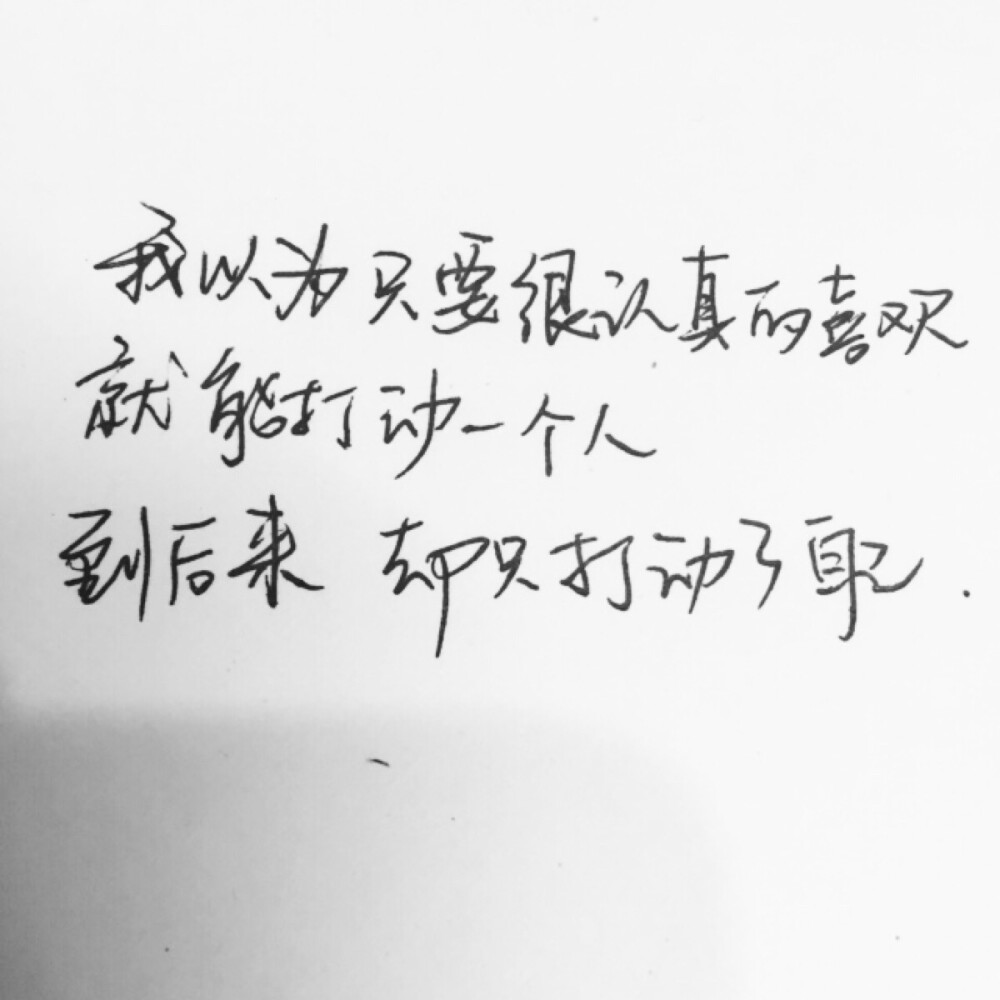 我以为只要很认真的喜欢
就能打动一个人
到后来 却只打动了自己.